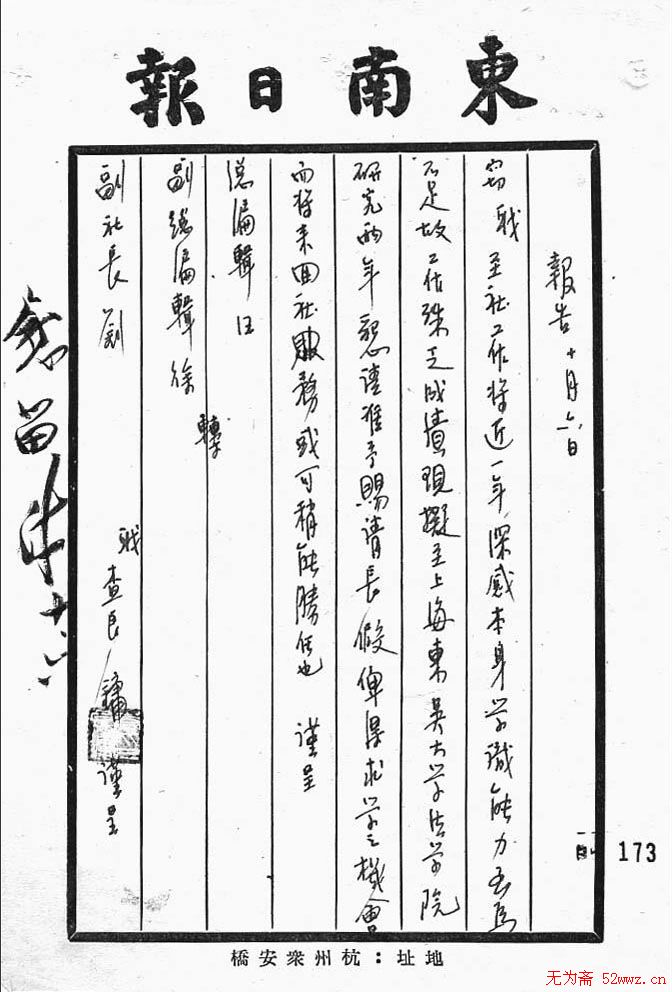 東南日報
報告 十月六日
窃 职至社工作将近一年深感本身学識能力至為
不足故工作殊乏成績現擬至上海東吴大学法学院
研究兩年懇请准予賜请長假俾得求学之機會
而将来囬社服務或可稍能勝任也 谨呈
总编輯汪
副總编輯徐 轉
副社長劉
职查良鏞 谨呈
留 十六
173
地址：杭州眾安橋
无为斋 52wwz.cn